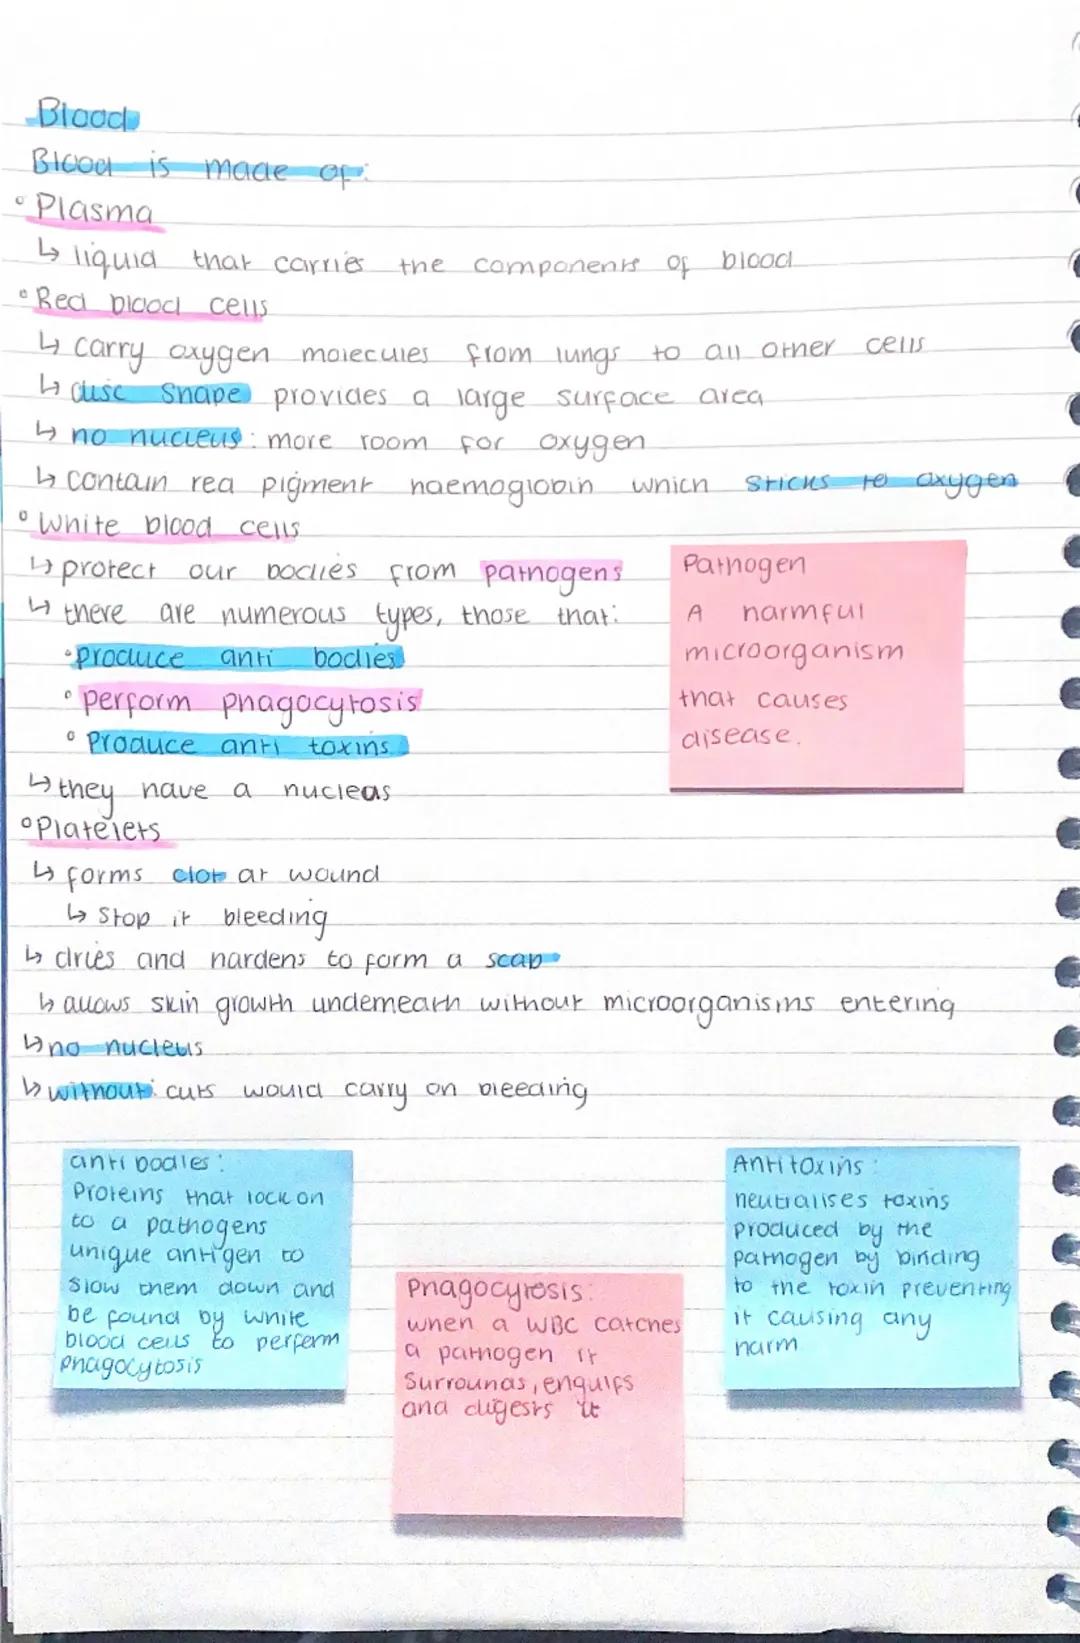 Blood
Blood is made of:
° Plasma
↳ liquid that carries the components of blood
° Red blood cells
↳ carry oxygen molecules from lungs to all other cells
↳ disc shape provides a large surface area
↳ no nucleus: more room for oxygen
↳ contain red pigment haemoglobin which sticks to oxygen
° White blood cells
↳ protect our bodies from pathogens
↳ there are numerous types, those that:
° produce anti bodies
° perform phagocytosis
° Produce anti toxins
↳ they have a nucleas
Pathogen
A harmful
microorganism
that causes
disease.
° Platelets
↳ forms clot at wound
↳ Stop it bleeding
↳ dries and hardens to form a scab
↳ allows skin growth underneath without microorganisms entering
↳ no nucleus
↳ without: cuts would carry on bleeding
anti bodies:
Proteins that lock on
to a pathogens
unique antigen to
slow them down and
be found by white
blood cells to perferm
phagocytosis
Phagocytosis:
when a WBC catches
a pathogen it
surrounds, engulfs
and digests it
Antitoxins:
neutralises toxins
produced by the
pathogen by binding
to the toxin preventing
it causing any
harm